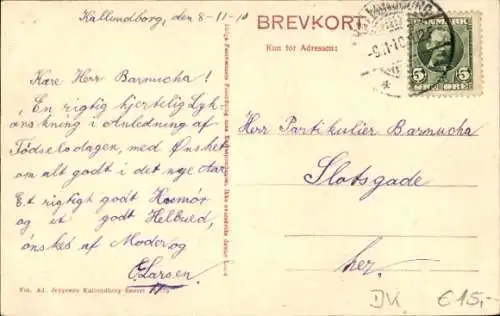 Kallundborg, den 8-11-10
BREVKORT
Kun for Adressen:
DANMARK
5 5
ØRE
Kære Herr Barnucha!
En rigtig hjertelig Lyk-
ønskning i Anledning af
Fødselsdagen, med Ønsket
om alt godt i det nye Aar
Et rigtigt godt Humør
og et godt Helbred,
ønskes af Moder og
C. Larsen.
Herr Partikulier Barnucha
Slotsgade
her.
Fot. Ad. Jeppesen Kallundborg
DK €15,-